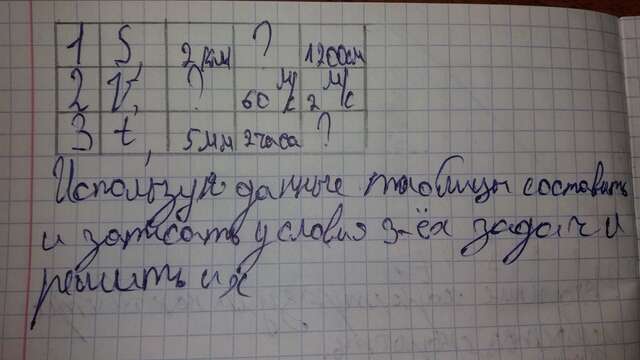 1 S, 2 км ? 1200см
2 V, ? 60 м/с 2 м/с
3 t, 5 мин 2 часа ?
Используя данные таблицы составить
и записать условия 3-ёх задач и
решить их